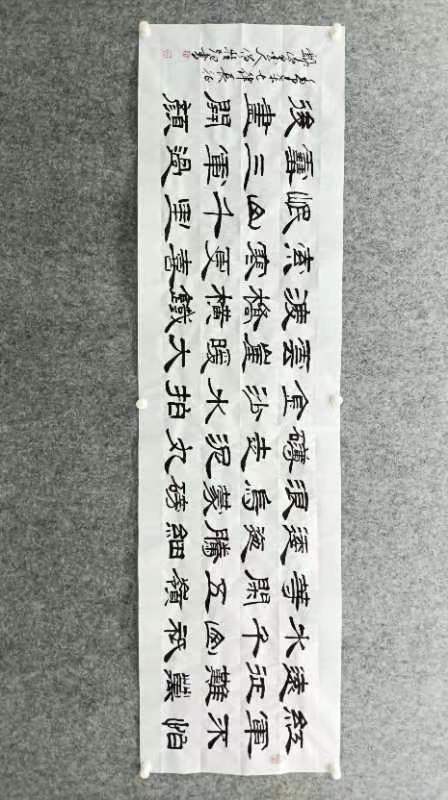 紅軍不怕
遠征難萬
水千山祇
等閑五嶺
逶迤騰細
浪烏蒙磅
礴走泥丸
金沙水拍
雲崖暖大
渡橋橫鐵
索寒更喜
岷山千里
雪三軍過
後盡開顏
七律長征
書